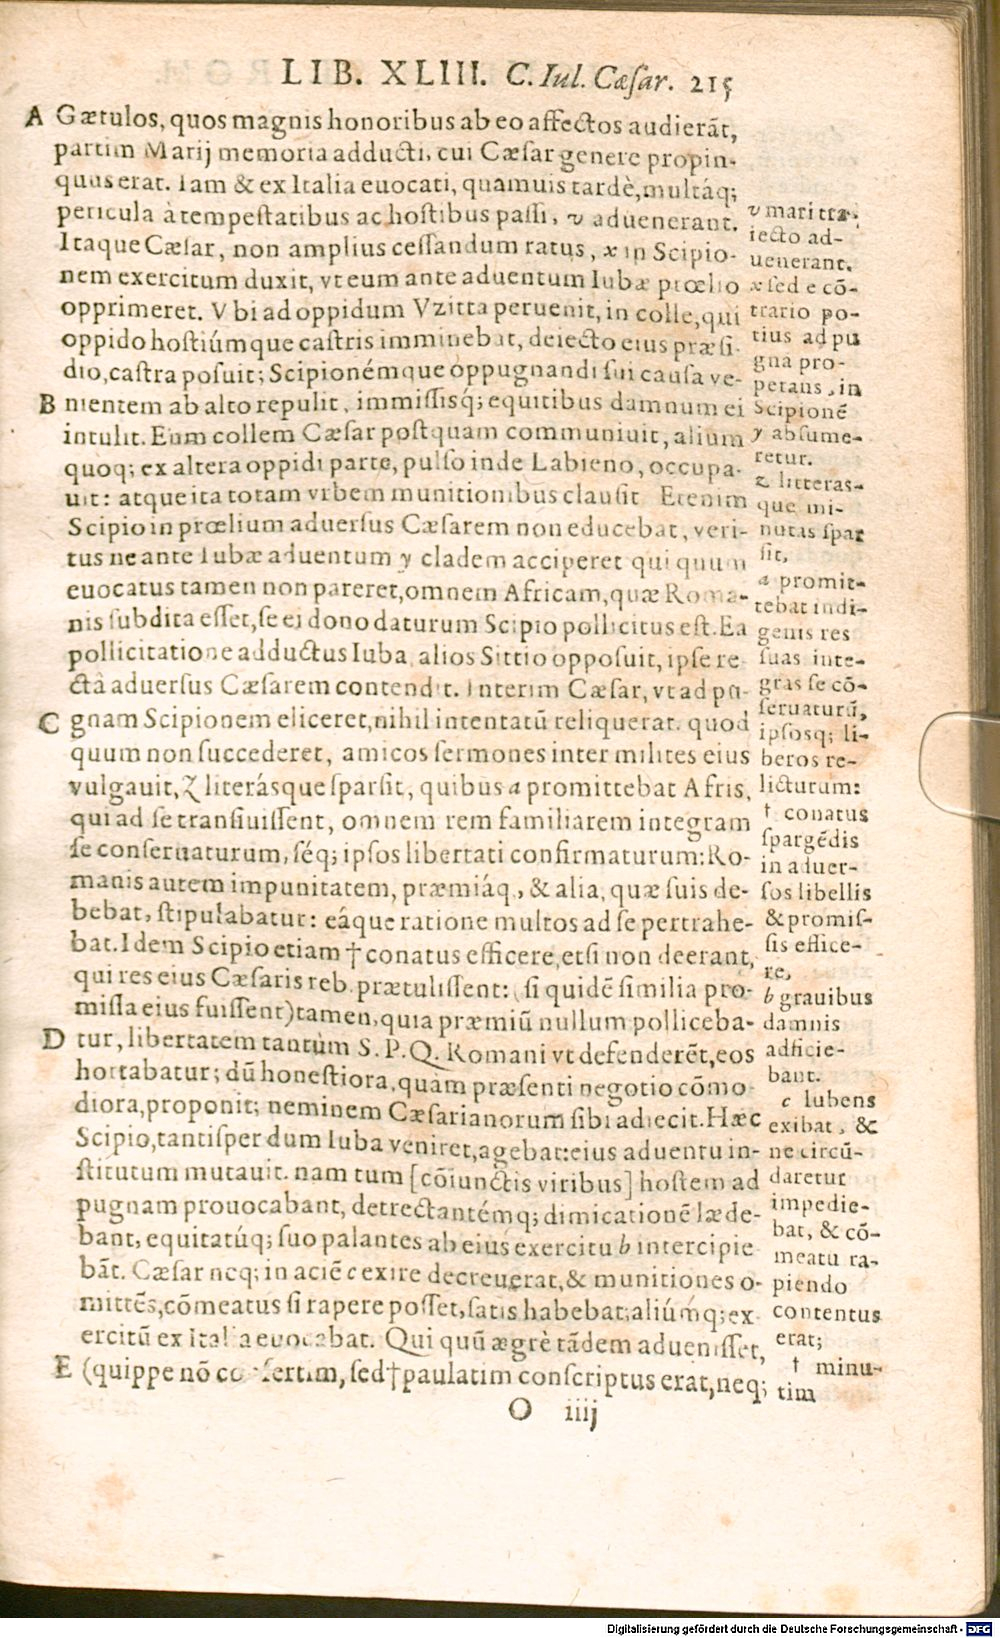 LIB. XLIII. C. Iul. Cæſar. 215
A Gætulos, quos magnis honoribus ab eo affectos audierãt,
partim Marij memoria adducti, cui Cæſar genere propin-
quus erat. Iam & ex Italia euocati, quamuis tardè, multáq;
pericula à tempeſtatibus ac hoſtibus paſſi, v aduenerant.
Itaque Cæſar, non amplius ceſſandum ratus, x in Scipio-
nem exercitum duxit, vt eum ante aduentum Iubæ prœlio
opprimeret. Vbi ad oppidum Vzitta peruenit, in colle, qui
oppido hoſtiúmque caſtris imminebat, deiecto eius præſi-
dio, caſtra poſuit; Scipionémque oppugnandi ſui cauſa ve-
B nientem ab alto repulit, immiſſisq́; equitibus damnum ei
intulit. Eum collem Cæſar poſtquam communiuit, alium
quoq; ex altera oppidi parte, pulſo inde Labieno, occupa-
uit: atque ita totam vrbem munitionibus clauſit. Etenim
Scipio in prœlium aduerſus Cæſarem non educebat, veri-
tus ne ante Iubæ aduentum y cladem acciperet qui quum
euocatus tamen non pareret, omnem Africam, quæ Roma-
nis ſubdita eſſet, ſe ei dono daturum Scipio pollicitus eſt. Ea
pollicitatione adductus Iuba, alios Sittio oppoſuit, ipſe re
ctà aduerſus Cæſarem contendit. Interim Cæſar, vt ad pu-
C gnam Scipionem eliceret, nihil intentatũ reliquerat. quod
quum non ſuccederet, amicos ſermones inter milites eius
vulgauit, z literásque ſparſit, quibus a promittebat Afris,
qui ad ſe tranſiuiſſent, omnem rem familiarem integram
ſe conſeruaturum, ſéq; ipſos libertati confirmaturum: Ro-
manis autem impunitatem, præmiáq., & alia, quæ ſuis de-
bebat, ſtipulabatur: eáque ratione multos ad ſe pertrahe-
bat. Idem Scipio etiam † conatus efficere, etſi non deerant,
qui res eius Cæſaris reb. prætuliſſent: (ſi quidẽ ſimilia pro-
miſſa eius fuiſſent) tamen, quia præmiũ nullum polliceba-
D tur, libertatem tantùm S. P. Q. Romani vt defenderẽt, eos
hortabatur; dũ honeſtiora, quàm præſenti negotio cõmo
diora, proponit; neminem Cæſarianorum ſibi adiecit. Hæc
Scipio, tantiſper dum Iuba veniret, agebat: eius aduentu in-
ſtitutum mutauit. nam tum [cõiunctis viribus] hoſtem ad
pugnam prouocabant, detrectantémq; dimicationẽ læde-
bant, equitatúq; ſuo palantes ab eius exercitu b intercipie
bãt. Cæſar neq; in aciẽ c exire decreuerat, & munitiones o-
mittẽs, cõmeatus ſi rapere poſſet, ſatis habebat; aliúmq; ex
ercitũ ex Italia euocabat. Qui quũ ægrè tãdem adueniſſet,
E (quippe nõ confertim, ſed † paulatim conſcriptus erat, neq;
O iiij
v mari tra-
iecto ad-
uenerant.
x ſed e cõ-
trario po-
tius ad pu
gna pro-
perans, in
Scipionẽ
y abſume-
retur.
z litteras-
que mi-
nutas ſpar
ſit,
a promit-
tebat indi-
genis res
ſuas inte-
gras ſe cõ-
ſeruaturũ,
ipſosq; li-
beros re-
licturum:
† conatus
ſpargẽdis
in aduer-
ſos libellis
& promiſ-
ſis effice-
re,
b grauibus
damnis
adficie-
bant.
c lubens
exibat, &
ne circũ-
daretur
impedie-
bat, & cõ-
meatu ra-
piendo
contentus
erat;
† minu-
tim
Digitalisierung gefördert durch die Deutsche Forschungsgemeinschaft - DFG